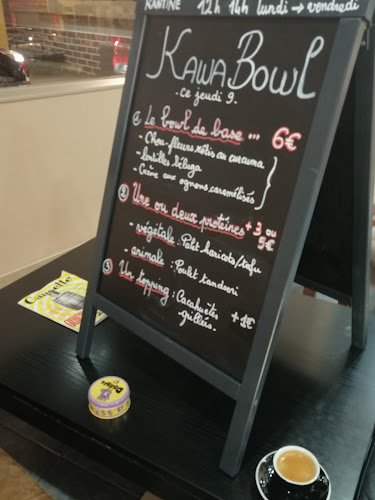 KANTINE 12h 14h lundi → vendredi
KAWA BOWL
- ce jeudi 9 -
① Le bowl de base ... 6€
- Chou-fleurs rôtis au curcuma
- lentilles béluga
- Crème aux ognons caramélisés
② Une ou deux protéines +3 ou 5€
- végétale : Pâté haricots/tofu
- animale : Poulet tandoori
③ Un topping : Cacahuètes grillées. +1€
Gazette
Dobble